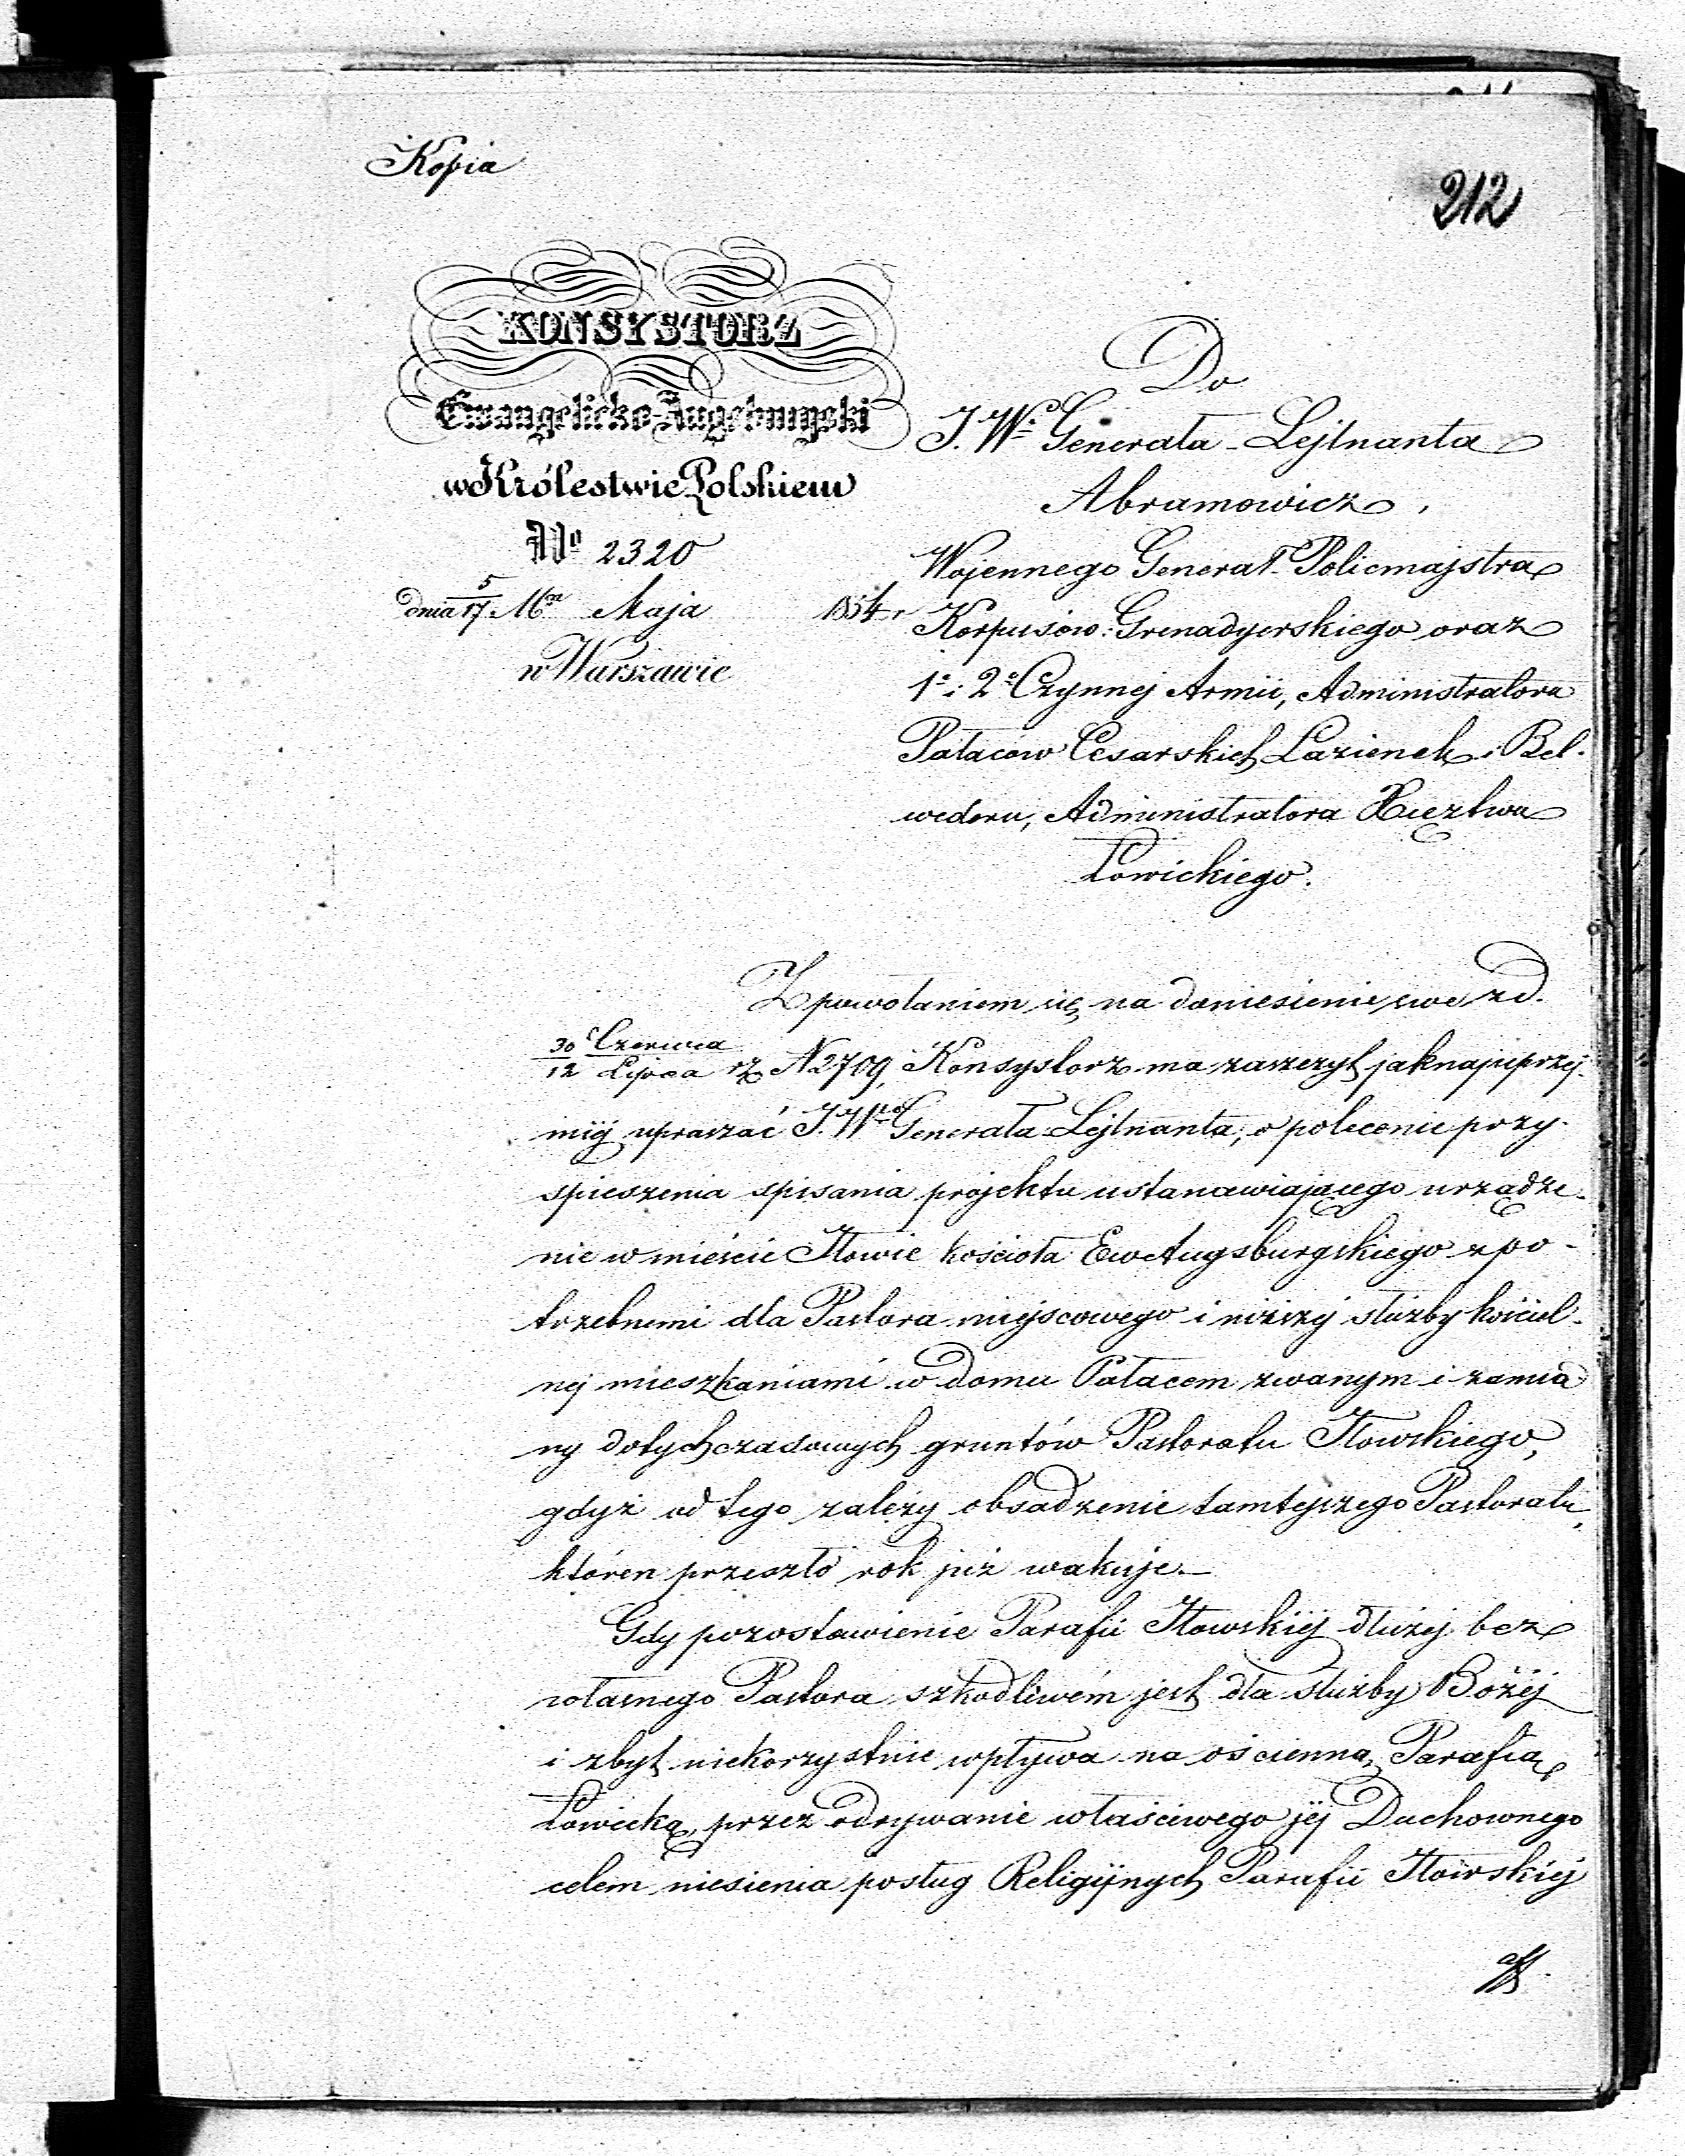 Kopia
212
KONSYSTORZ
Ewangelicko-Augsburgski
w Królestwie Polskiem
No 2320
dnia 5/17 Mca Maja 1854 r
w Warszawie
Do
J. W. Generała-Lejtnanta
Abramowicz,
Wojennego Generał-Policmajstra
Korpusów: Grenadyerskiego oraz
1o i 2o Czynnej Armii, Administratora
Pałaców Cesarskich Łazienek i Bel-
wederu, Administratora Xięztwa
Łowickiego.
Z powołaniem się na doniesienie swe z d.
30 Czerwca / 12 Lipca N 2709, Konsystorz ma zaszczyt jaknajuprzej-
miéj upraszać J. Wgo Generała Lejtnanta, o polecenie przy-
spieszenia spisania projektu ustanawiającego urządze-
nie w mieście Iłowie kościoła Ew Augsburgskiego z po-
trzebnemi dla Pastora miejscowego i niższej służby kościel-
nej mieszkaniami w domu Pałacem zwanym i zamia-
ny dotychczasowych gruntów Pastoratu Iłowskiego,
gdyż od tego zależy obsadzenie tamtejszego Pastoratu,
któren przeszło rok już wakuje.—
Gdy pozostawienie Parafii Iłowskiéj dłużej bez
własnego Pastora szkodliwém jest dla służby Bożéj
i zbyt niekorzystnie wpływa na ościenną Parafią
Łowicką, przez odrywanie właściwego jéj Duchownego
celem niesienia posług Religijnych Parafii Iłowskiéj